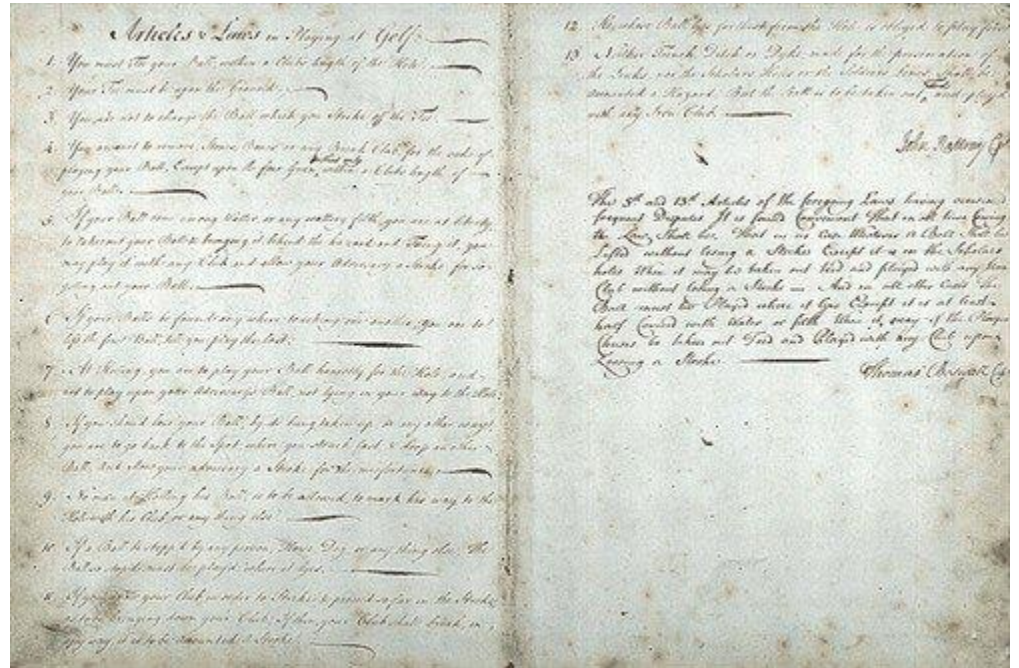 Articles & Laws in Playing at Golf.
1. You must Tee your Ball, within a Clubs length of the Hole.
2. Your Tee must be upon the Ground.
3. You are not to change the Ball which you Strike off the Tee.
4. You are not to remove, Stones, Bones or any Break Club for the sake of
playing your Ball, Except upon the fair Green, within a Clubs length of
your Ball.
5. If your Ball come among Water, or any wattery filth, you are at liberty
to take out your Ball & bringing it behind the hazard and Teeing it, you
may play it with any Club and allow your Adversary a Stroke for so
getting out your Ball.
6. If your Balls be found any where touching one another, you are to
lift the first Ball, till you play the last.
7. At Holing, you are to play your Ball honestly for the Hole, and
not to play upon your Adversary's Ball, not lying in your way to the Hole.
8. If you should lose your Ball, by its being taken up, or any other way,
you are to go back to the Spot, where you struck last, & drop another
Ball, And allow your adversary a Stroke for the misfortune.
9. No man at Holling his Ball, is to be allowed, to mark his way to the
Hole with his Club or any thing else.
10. If a Ball be stopp'd by any person, Horse, Dog or any thing else, The
Ball so stop'd must be play'd where it lyes.
11. If you draw your Club in order to Strike & proceed so far in the Stroke
as to be bringing down your Club; If then, your Club shall break, in
any way, it is to be accounted a Stroke.
12. He whose Ball lyes farthest from the Hole is obliged to play first.
13. Neither Trench, Ditch or Dyke, made for the preservation of
the Links, nor the Scholars Holes or the Soldiers Lines, Shall be
accounted a Hazard, But the Ball is to be taken out, Teed and play'd
with any Iron Club.
John Rattray Cpt
The 5th and 13th Articles of the foregoing Laws having occasioned
frequent Disputes It is found Convenient That in all time Coming
the Law Shall be, That in no Case Whatever a Ball Shall be
Lifted without losing a Stroke Except it is in the Scholars
holes When it may be taken out Teed and played with any Iron
Club without losing a Stroke And in all other Cases The
Ball must be Played where it lyes Except it is at least
half Covered with Water or filth When it may if the Player
Chuses be taken out Teed and Played with any Club upon
Loosing a Stroke
Thomas Boswall Cpt